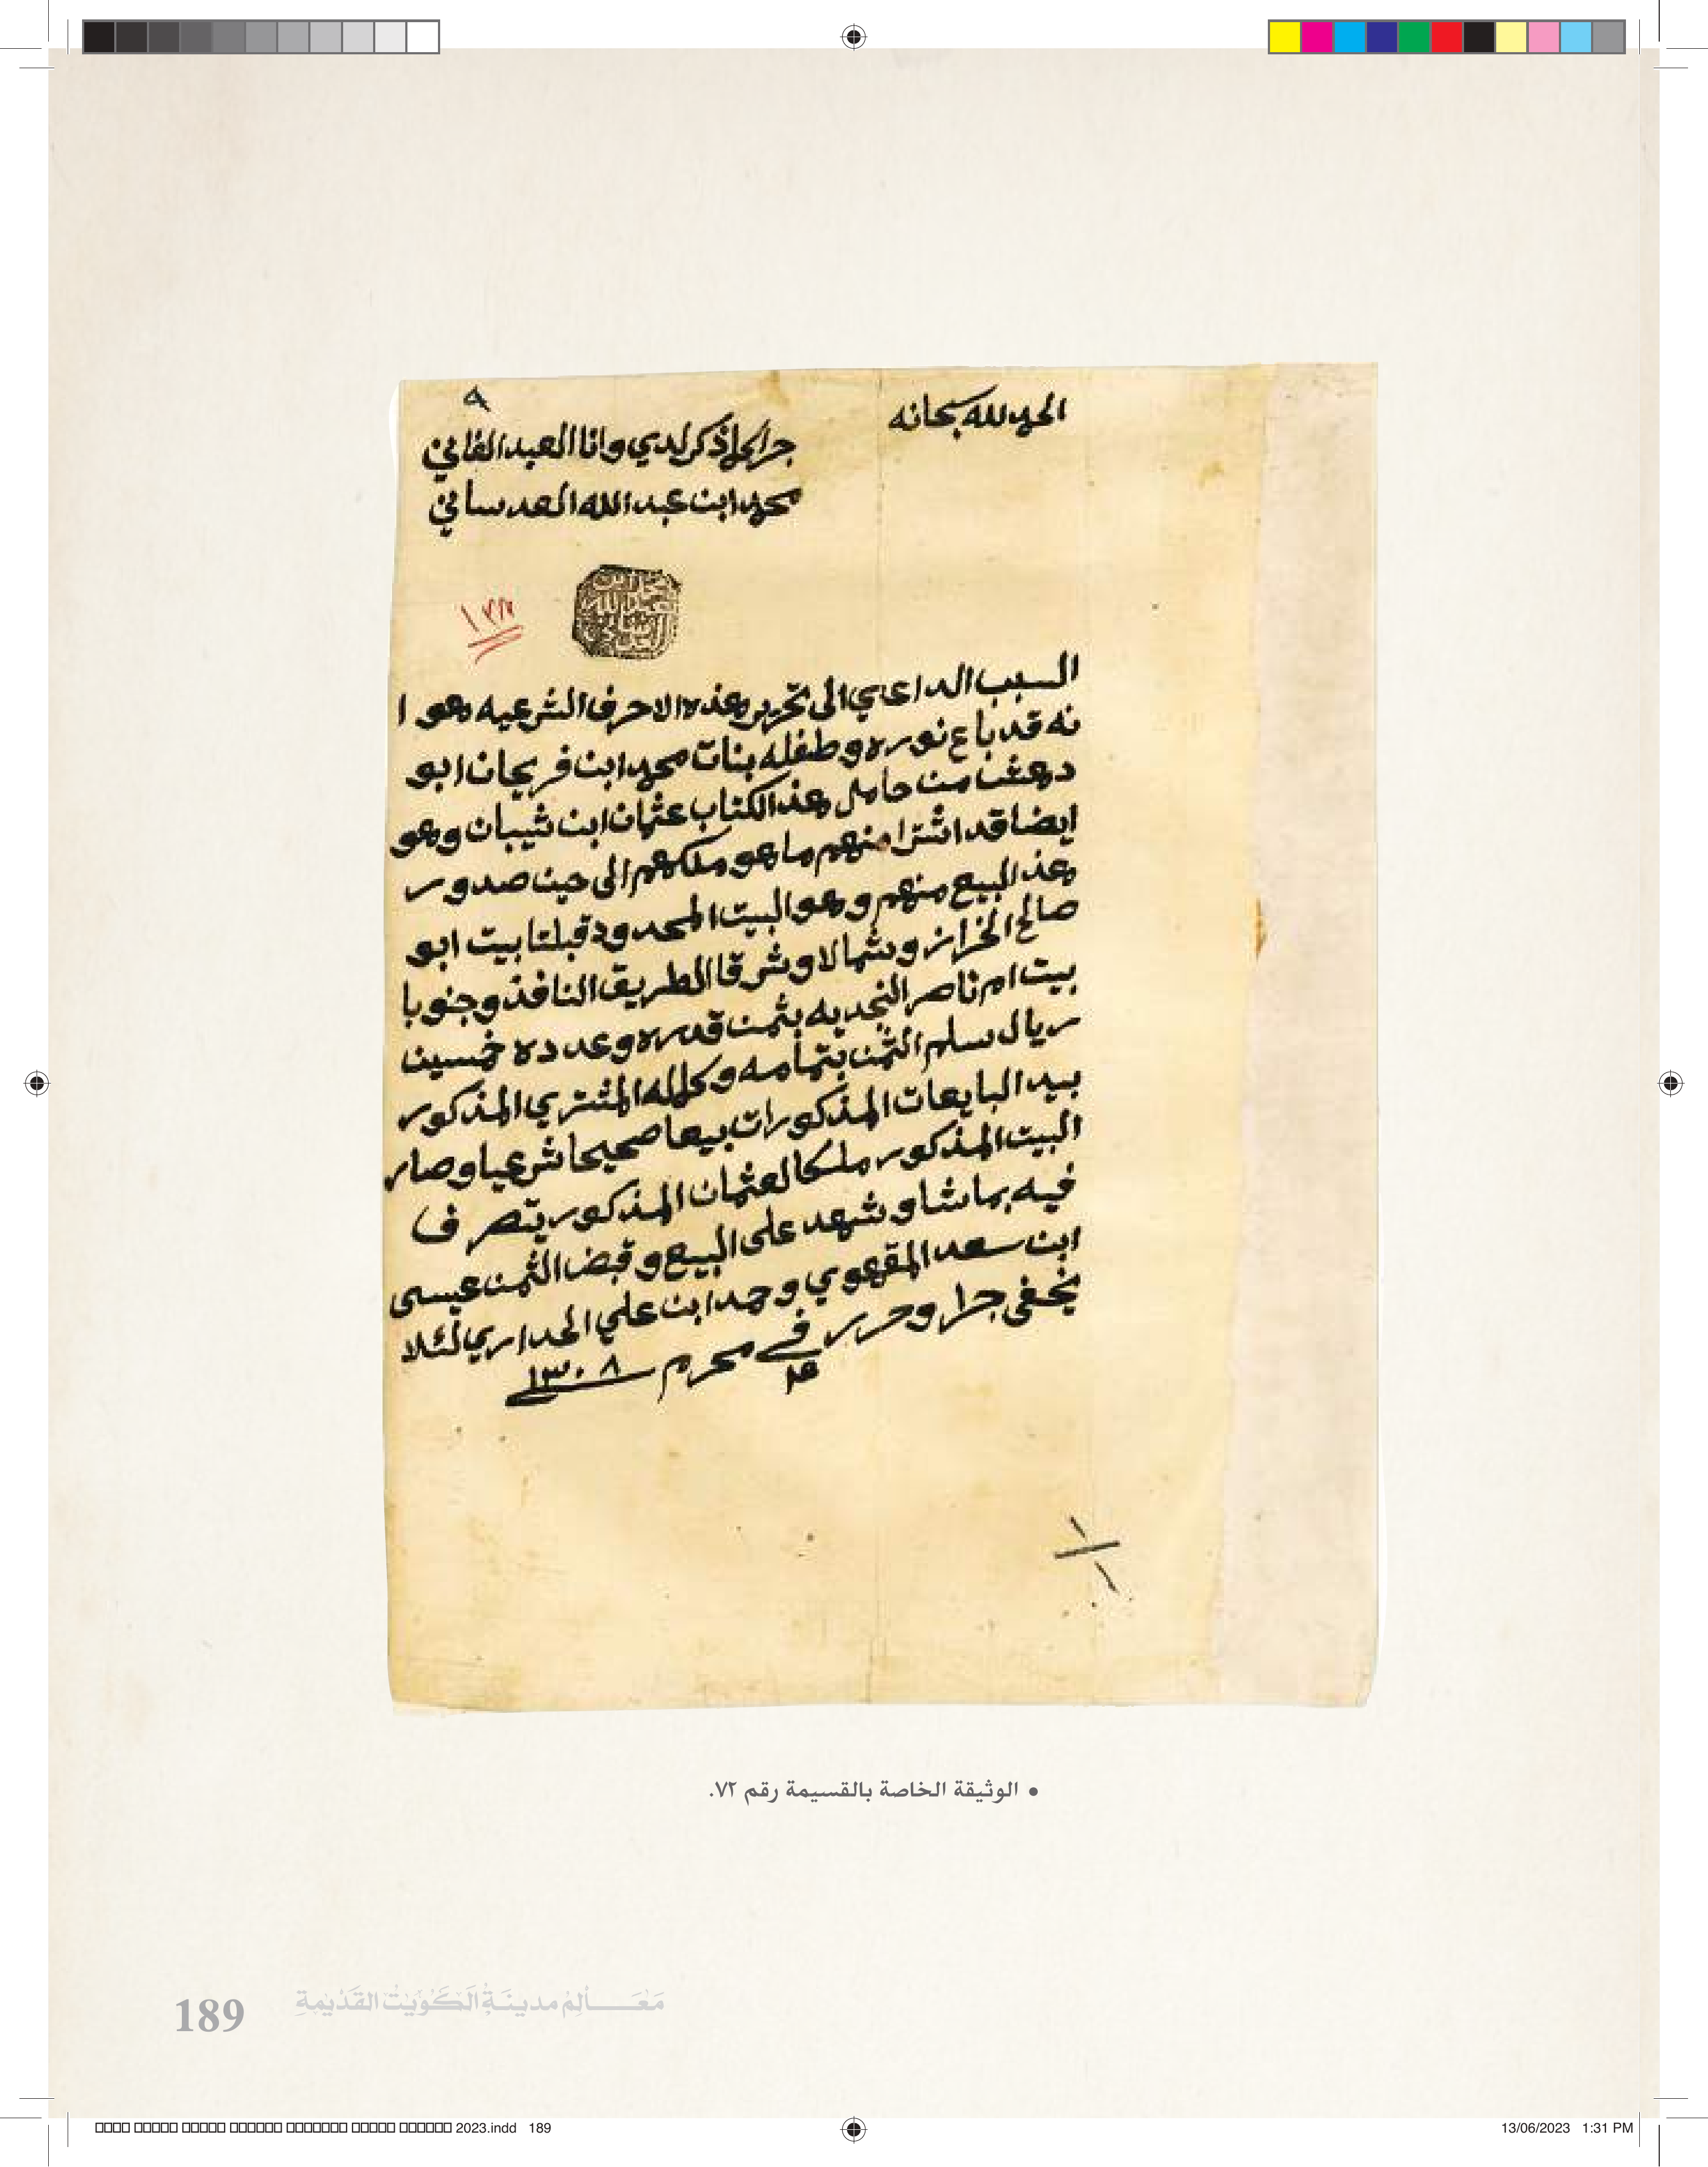 الحمد لله سبحانه
٩
جرا كما ذكر لدي وانا العبد الفاني
محمد ابن عبد الله العدساني
السبب الداعي الى تحرير هذه الاحرف الشرعيه هو ا
نه قد باع نوره وطفله بنات محمد ابن فريحان ابو
دهش من حامل هذ الكتاب عثمان ابن شيبان وهو
ايضا قد اشترا منهم ما هو ملكهم الى حين صدور
هذ البيع منهم وهو البيت المحدود قبلتا بيت ابو
صالح الخراز وشمالا وشرقا الطريق النافذ وجنوبا
بيت ام ناصر النجديه بثمن قدره وعدده خمسين
ريال سلم الثمن بتمامه وكماله المشتري المذكور
بيد البايعات المذكورات بيعا صحيحا شرعيا وصار
البيت المذكور ملكا لعثمان المذكور يتصرف
فيه بما شا وشهد على البيع وقبض الثمن عيسى
ابن سعد المقهوي وحمد ابن علي الحداري لئلا
يخفى جرا وحرر في محرم ١٣٠٨
١
١
• الوثيقة الخاصة بالقسيمة رقم ٧٢.
189 مَعَـــالِمُ مدينَةِ الكُوَيْتْ القَدْيمةِ
2023.indd 189 13/06/2023 1:31 PM